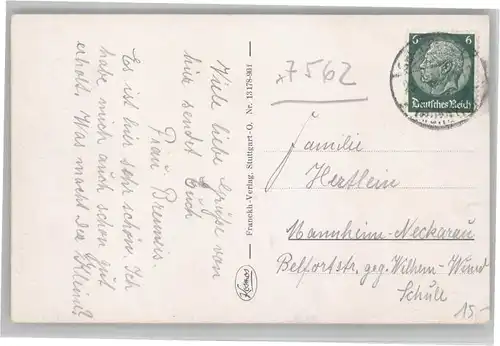 Viele liebe Grüße von
hier sendet Euch
Frau Bennis.
Es ist hier sehr schön. Ich
habe mich auch schon gut
erholt. Was macht der Kleine?
Franckh-Verlag, Stuttgart-O. Nr. 13178-901
Kosmos
x7562
6 6
Deutsches Reich
Familie
Hertlein
Mannheim-Neckarau
Belfortstr. geg. Wilhelm-Wund
Schule
15.-